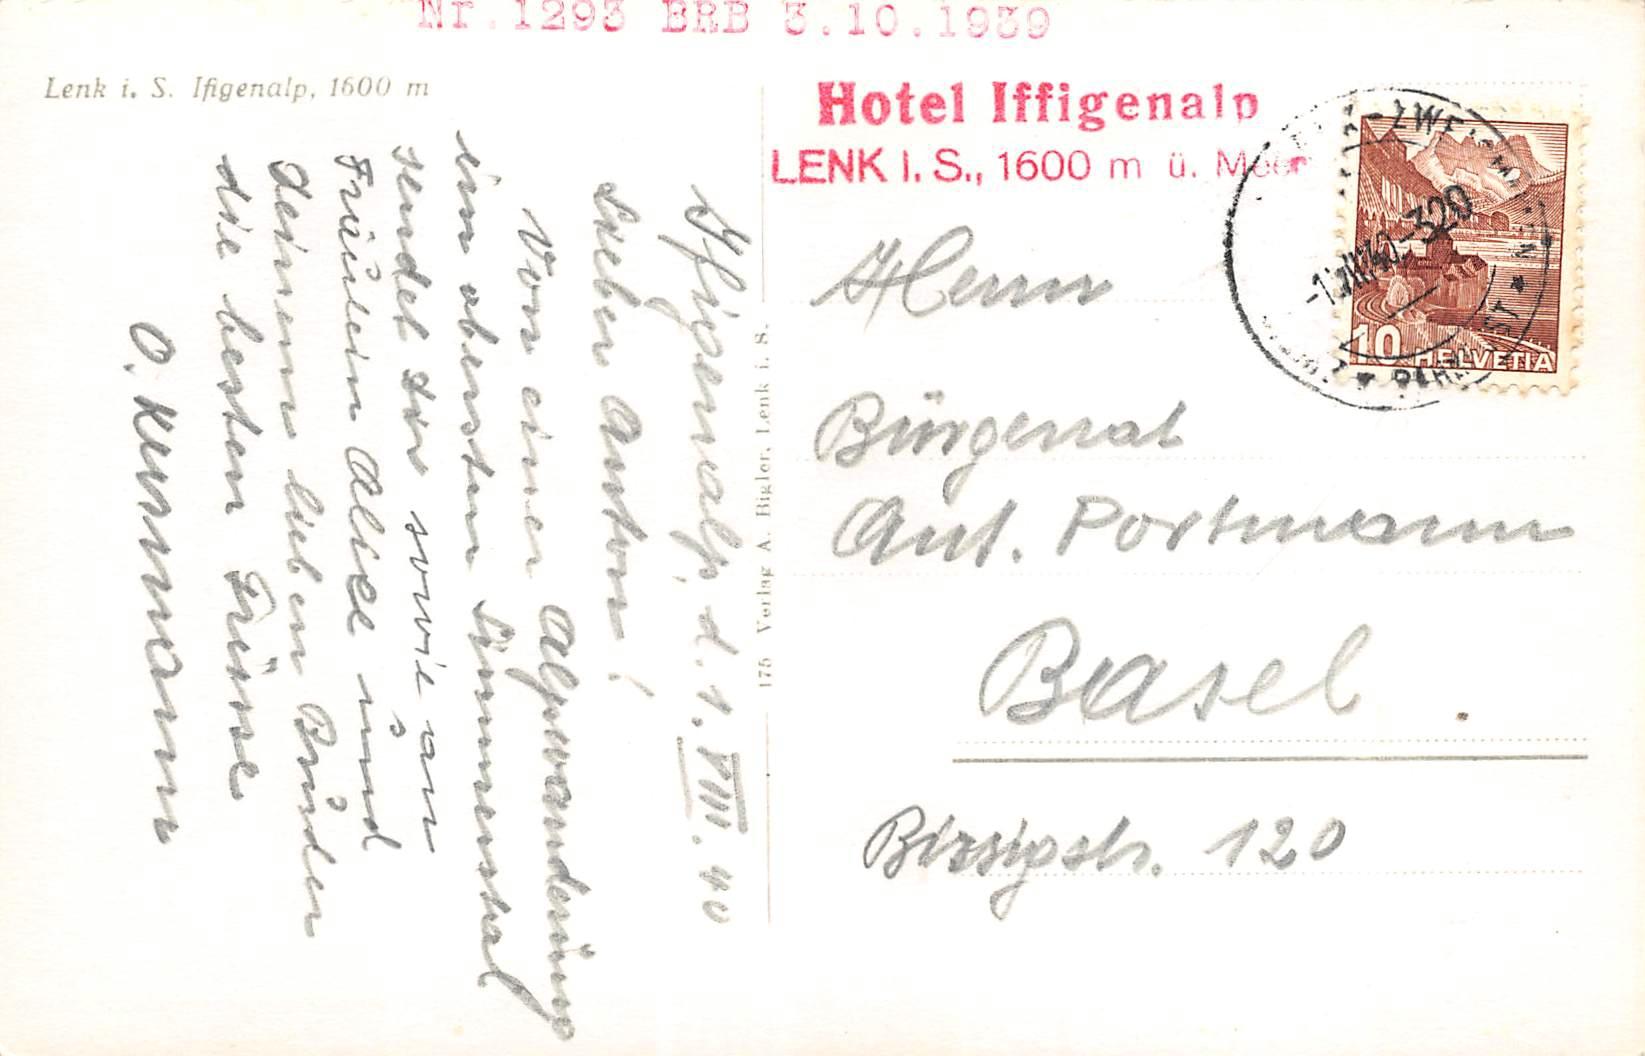 Nr. 1293 BRB 3.10.1939
Lenk i. S. Ifigenalp, 1600 m
Hotel Iffigenalp
LENK I. S., 1600 m ü. Meer
10 HELVETIA
Iffigenalp, d. 1. VIII. 40
Lieber Anton!
Von einer Alpwanderung
im obersten Simmental
sendet dir sowie an
Fräulein Alice und
deinem lieben Bruder
die besten Grüsse
O. Kunmann
175 Verlag A. Bigler, Lenk i. S.
Herrn
Bürgerrat
Ant. Portmann
Basel
Birsigstr. 120